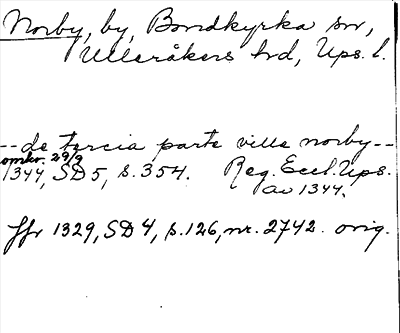 Norby, by, Bondkyrka sn,
Ulleråkers hd, Ups. l.
-- de tercia parte ville norby --
omkr. 29/9
1344, SD 5, s. 354. Reg. Eccl. Ups.
av 1344.
Jfr 1329, SD 4, s. 126, nr. 2742. orig.